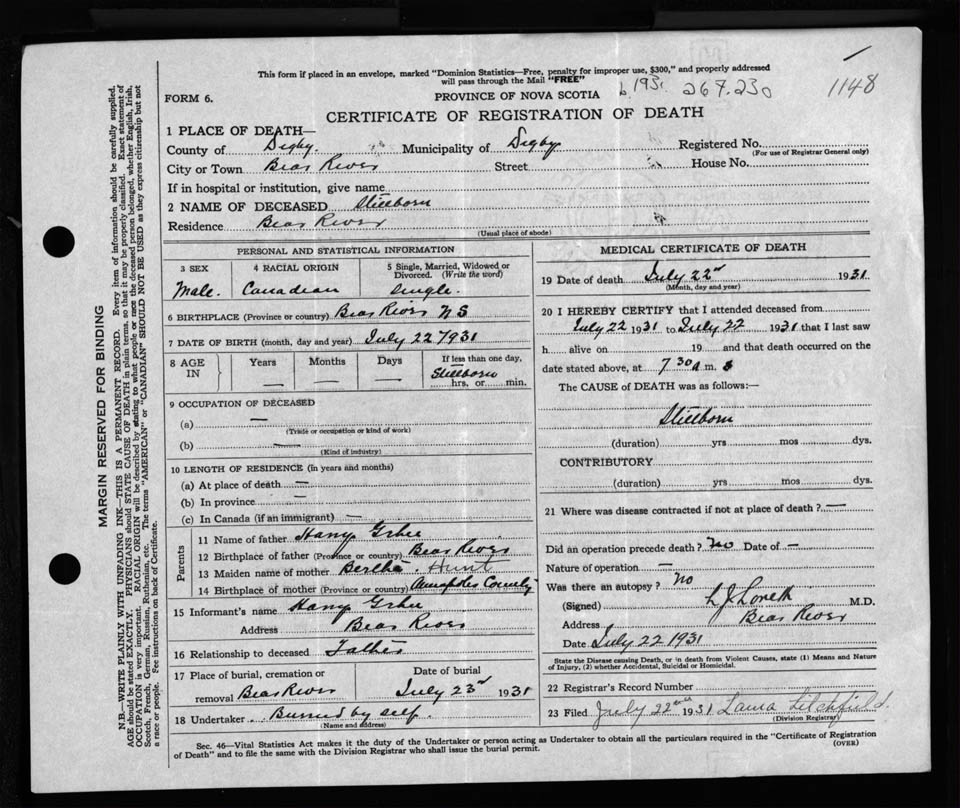 This form if placed in an envelope, marked "Dominion Statistics—Free, penalty for improper use, $300," and properly addressed
will pass through the Mail "FREE"
1931 267.230
1148
FORM 6.
PROVINCE OF NOVA SCOTIA
CERTIFICATE OF REGISTRATION OF DEATH
1 PLACE OF DEATH—
County of Digby Municipality of Digby Registered No.
(For use of Registrar General only)
City or Town Bear River Street House No.
If in hospital or institution, give name
2 NAME OF DECEASED Stillborn
Residence Bear River
(Usual place of abode)
PERSONAL AND STATISTICAL INFORMATION
3 SEX 4 RACIAL ORIGIN 5 Single, Married, Widowed or
Divorced. (Write the word)
Male. Canadian Single.
6 BIRTHPLACE (Province or country) Bear River N S
7 DATE OF BIRTH (month, day and year) July 22 1931
8 AGE IN Years Months Days If less than one day,
— — — Stillborn
hrs. or min.
9 OCCUPATION OF DECEASED
(a) —
(Trade or occupation or kind of work)
(b) —
(Kind of industry)
10 LENGTH OF RESIDENCE (in years and months)
(a) At place of death —
(b) In province —
(c) In Canada (if an immigrant) —
Parents
11 Name of father Harry
12 Birthplace of father (Province or country) Bear River
13 Maiden name of mother Bertha Hunt
14 Birthplace of mother (Province or country) Annapolis County
15 Informant's name Harry
Address Bear River
16 Relationship to deceased Father
17 Place of burial, cremation or Date of burial
removal Bear River July 23rd 1931
18 Undertaker Burried by self.
(Name and address)
MEDICAL CERTIFICATE OF DEATH
19 Date of death July 22nd 1931
(Month, day and year)
20 I HEREBY CERTIFY that I attended deceased from
July 22 1931 to July 22 1931 that I last saw
h alive on 19 and that death occurred on the
date stated above, at 7 30 a m.
The CAUSE of DEATH was as follows:—
Stillborn
(duration) yrs mos dys.
CONTRIBUTORY
(duration) yrs mos dys.
21 Where was disease contracted if not at place of death? —
Did an operation precede death? No Date of —
Nature of operation —
Was there an autopsy? No
(Signed) M.D.
Address Bear River
Date July 22 1931
State the Disease causing Death, or in death from Violent Causes, state (1) Means and Nature
of Injury, (2) whether Accidental, Suicidal or Homicidal.
22 Registrar's Record Number
23 Filed July 22nd 1931 Laura Litchfield.
(Division Registrar)
Sec. 46—Vital Statistics Act makes it the duty of the Undertaker or person acting as Undertaker to obtain all the particulars required in the "Certificate of Registration
of Death" and to file the same with the Division Registrar who shall issue the burial permit.
(OVER)
MARGIN RESERVED FOR BINDING
N.B.—WRITE PLAINLY WITH UNFADING INK—THIS IS A PERMANENT RECORD. Every item of information should be carefully supplied.
AGE should be stated EXACTLY. PHYSICIANS should STATE CAUSE OF DEATH in plain terms, so that it may be properly classified. Exact statement of
OCCUPATION is very important. RACIAL ORIGIN will be described by stating to what people or race the deceased person belonged, whether English, Irish,
Scotch, French, German, Russian, Ruthenian, etc. The terms "AMERICAN" or "CANADIAN" SHOULD NOT BE USED as they express citizenship but not
a race or people. See instructions on back of Certificate.